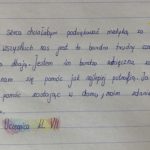 Serca chciałabym podziękować medyką za
wszystkich nas jest to bardzo trudny czas
dbają. Jestem im bardzo wdzięczna za
nam się pomóc jak najlepiej potrafią. Ja
pomóc zostając w domu, moim zdaniem
Uczennica kl. VII